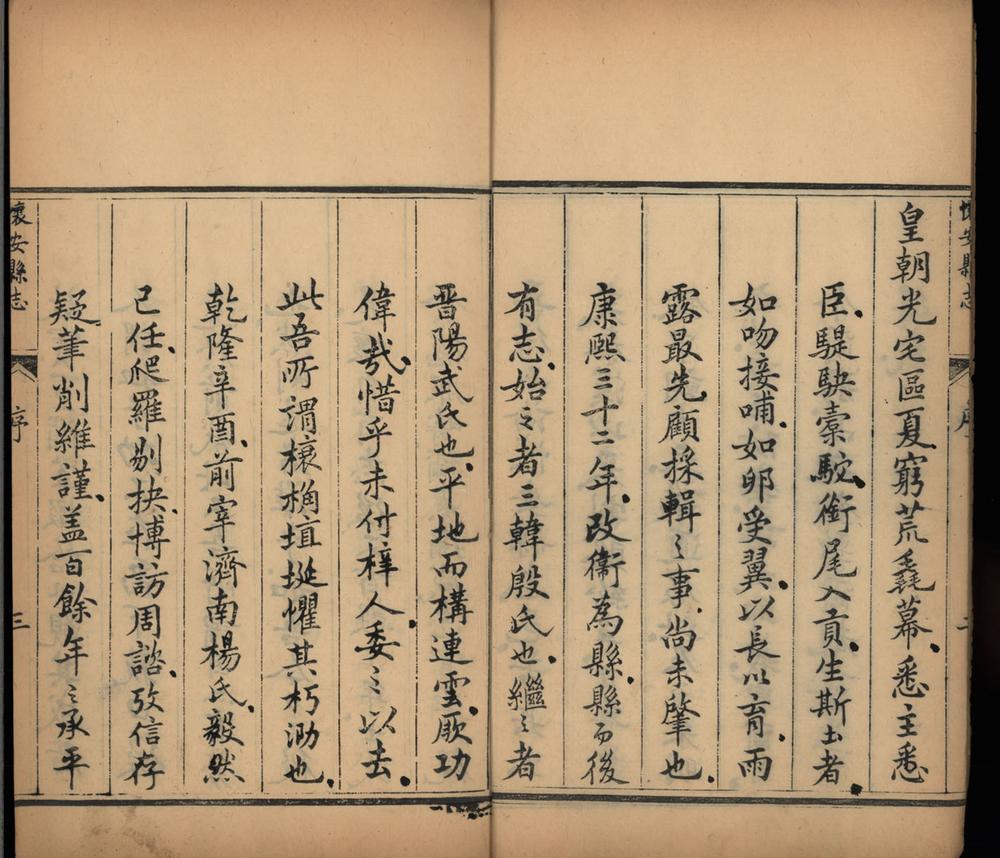 懷安縣志
序
二
皇朝光宅區夏窮荒毳幕悉主悉
臣騠駃橐駝銜尾入貢生斯土者
如吻接哺如卵受翼以長以育雨
露最先顧採輯之事尚未肇也
康熙三十二年改衛為縣縣而後
有志始之者三韓殷氏也繼之者
晋陽武氏也平地而構連雲厥功
偉哉惜乎未付梓人委之以去
此吾所謂榱桷埴埏懼其朽泐也
乾隆辛酉前宰濟南楊氏毅然
已任爬羅剔抉博訪周諮攷信存
疑筆削維謹蓋百餘年之承平
懷安縣志
序
三